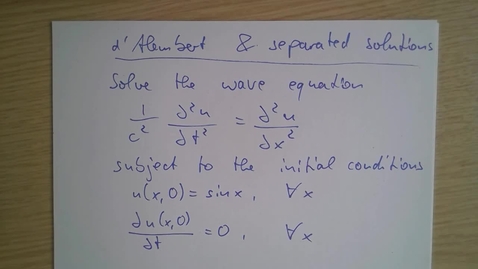 d'Alembert & separated solutions
Solve the wave equation
1/c² ∂²u/∂t² = ∂²u/∂x²
subject to the initial conditions
u(x,0) = sinx, ∀x
∂u(x,0)/∂t = 0, ∀x